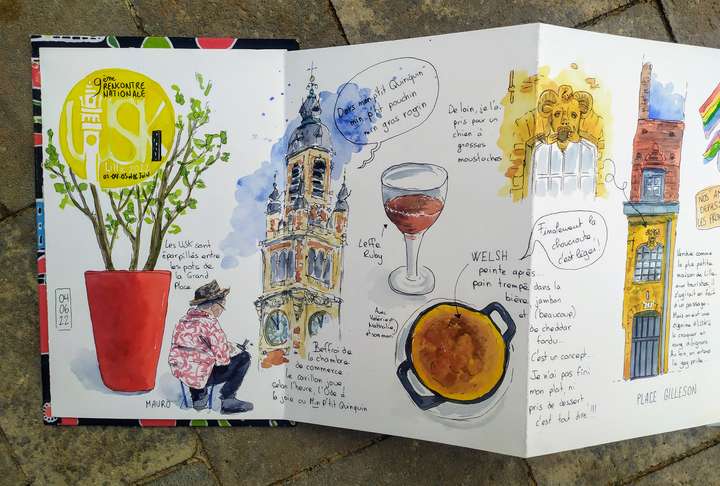 9ème
RENCONTRE
NATIONALE
USK
Lille
03.04.05 06 Juin
Les USK sont
éparpillés entre
les pots de
la Grand
Place
04
06
22
MAURO
Dors mon p'tit Quinquin
min p'tit pouchin
min gros rogin
Beffroi de
la chambre
de
commerce
le carillon joue,
selon l'heure, l'Ode à
la joie ou Min P'tit Quinquin
Leffe
Ruby
Avec
Valérie
Nathalie,
et son mari
WELSH
peinte après...
pain trempé dans la
bière,
jambon
et (beaucoup)
de cheddar
fondu...
C'est un concept.
Je n'ai pas fini
mon plat ni
pris de dessert,
c'est tout dire!!!
De loin, je l'ai
pris pour un
chien à
grosses
moustaches
Finalement la
choucroute,
c'est léger!
Vendue comme
la plus petite
maison de Lille
aux touristes, il
s'agirait en fait
d'un passage.
Mais on est une
dizaine d'USK à
la croquer et
PLACE GILLESON